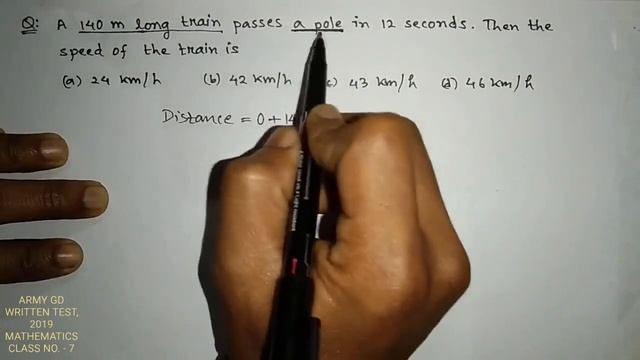 Q: A 140 m long train passes a pole in 12 seconds. Then the
speed of the train is
(a) 24 km/h (b) 42 km/h c) 43 km/h (d) 46 km/h
Distance = 0 + 14
ARMY GD
WRITTEN TEST,
2019
MATHEMATICS
CLASS NO. - 7